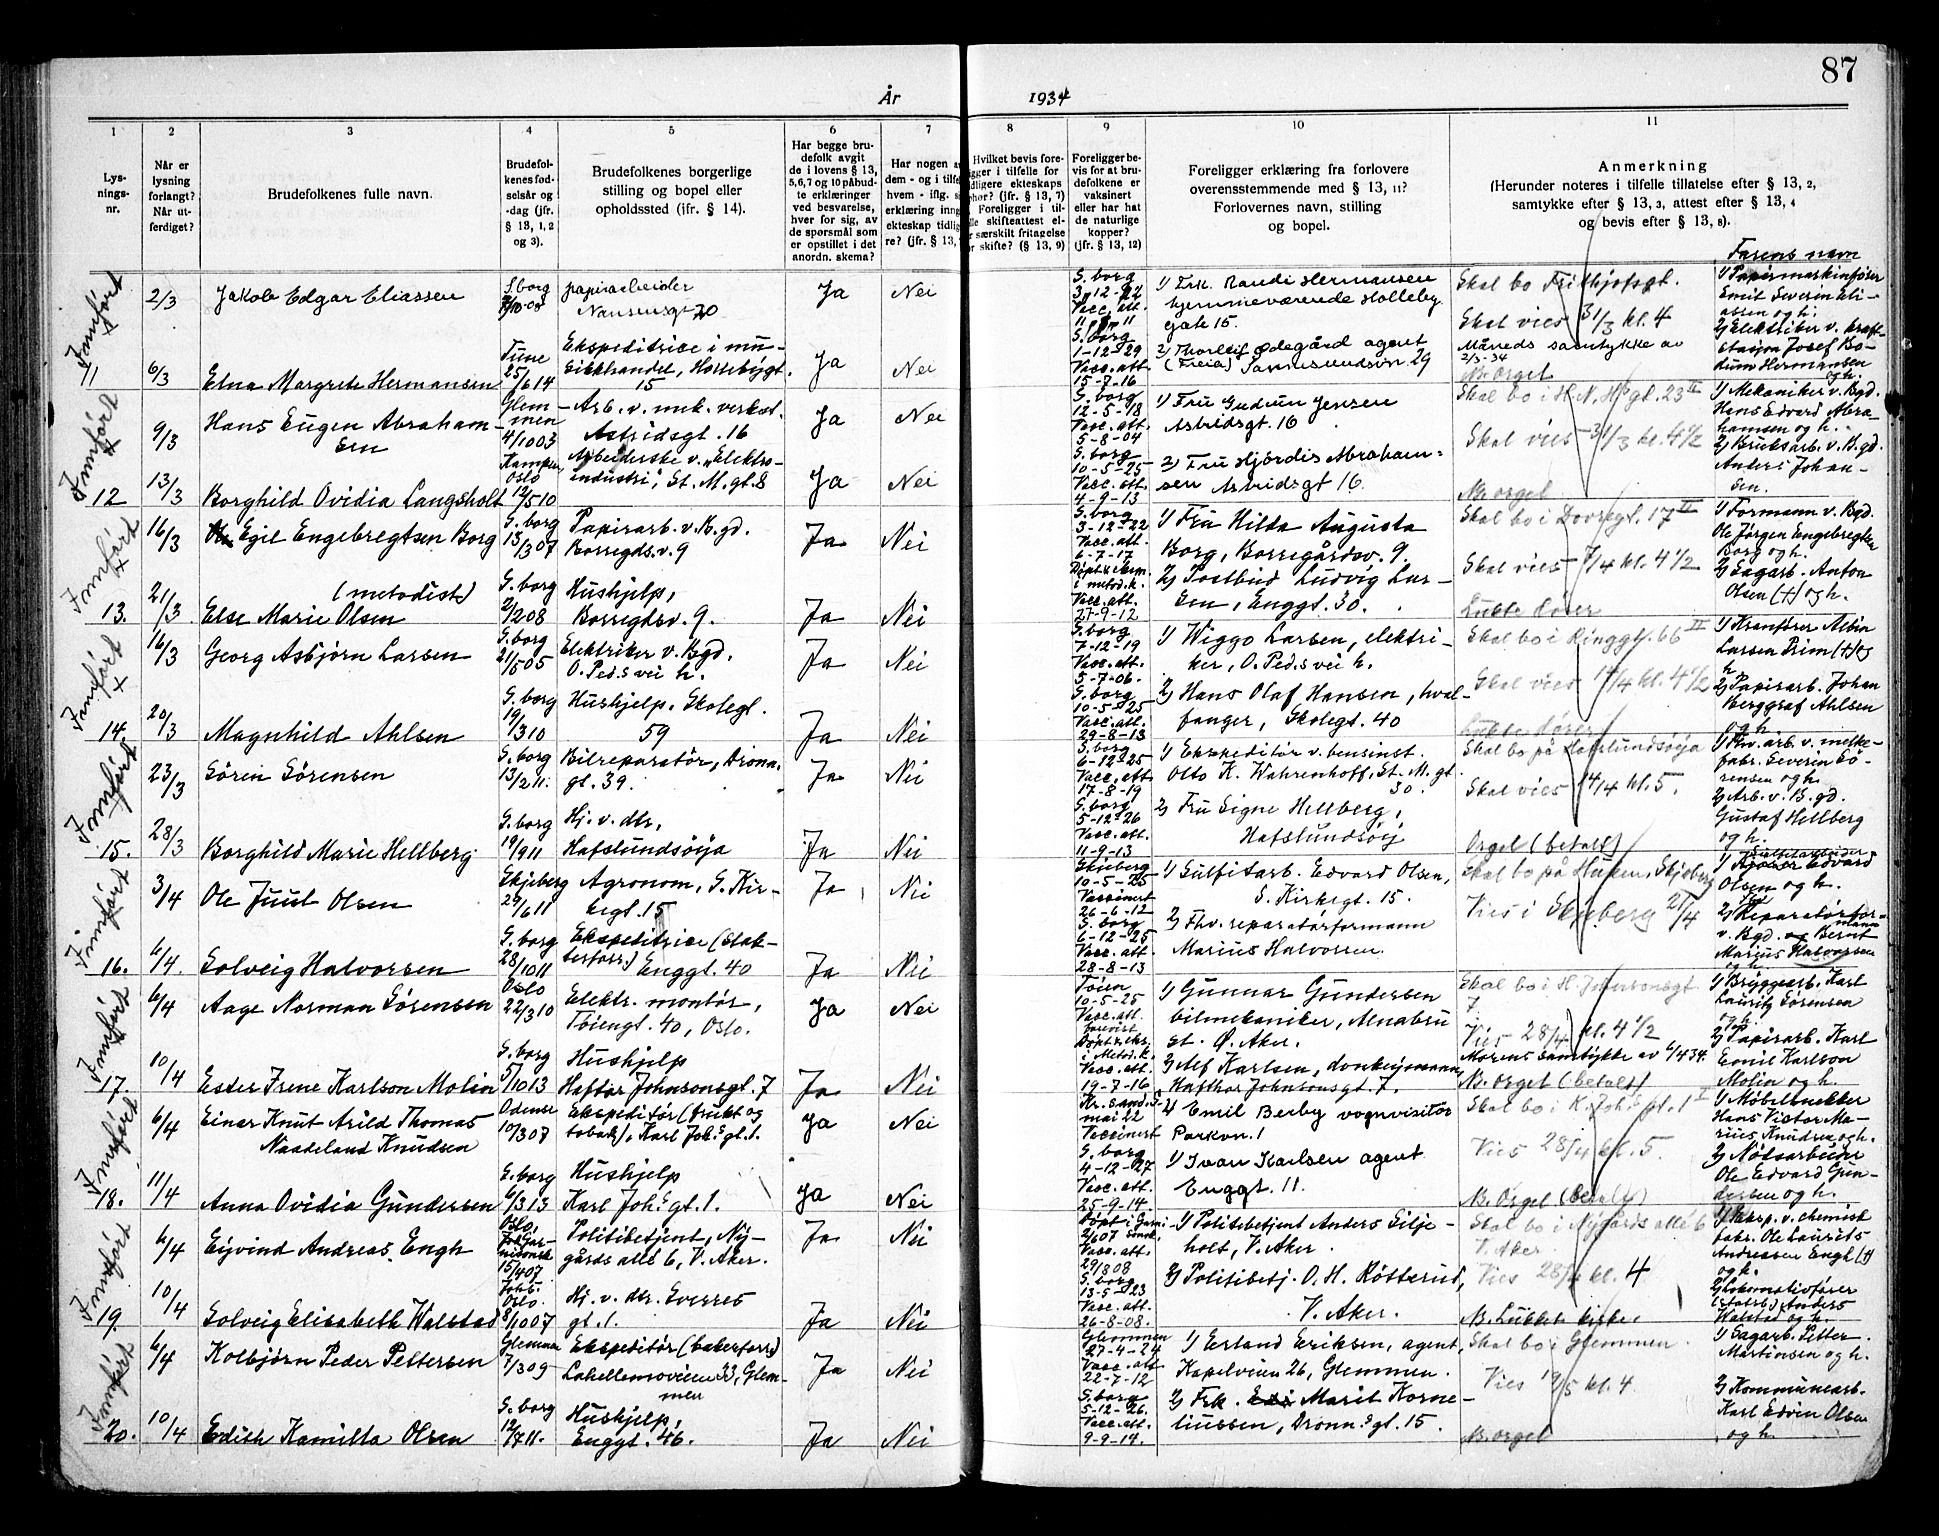 87
År 1934
1 2 3 4 5 6 7 8 9 10 11
Lys-
nings-
nr.
Når er
lysning
forlangt?
Når ut-
ferdiget?
Brudefolkenes fulle navn.
Brudefol-
kenes fød-
selsår og
-dag (jfr.
§ 13, 1, 2
og 3).
Brudefolkenes borgerlige
stilling og bopel eller
opholdssted (ifr. § 14).
Har begge bru-
defolk avgit
de i lovens § 13,
5, 6, 7 og 10 påbud-
te erklæringer
ved besvarelse,
hver for sig, av
de spørsmål som
er opstillet i det
anordn. skema?
Har nogen a
dem - og i tilfe
hvem - iflg. si
erklæring inng
ekteskap tidlig
re? (jfr. § 13,
Hvilket bevis fore-
ligger i tilfelle for
tidligere ekteskaps
ophør? (jfr. § 13, 7)
Foreligger i til-
felle skifteattest el-
r særskilt fritagelse
or skifte? (§ 13, 9)
Foreligger be-
vis for at bru-
defolkene er
vaksinert
eller har hat
de naturlige
kopper?
(jfr. § 13, 12)
Foreligger erklæring fra forlovere
overensstemmende med § 13, 11?
Forlovernes navn, stilling
og bopel.
Anmerkning
(Herunder noteres i tilfelle tillatelse efter § 13, 2,
samtykke efter § 13, 3, attest efter § 13, 4
og bevis efter § 13, 8).
Farens navn
Innført
11
2/3
Jakob Edgar Eliassen
S.borg
papirarbeider
Nansensgt 20
Ja
Nei
S.borg
3-12-22
Vacc. att.
1) Frk. Randi Hermansen
hjemmeværende Holleby
gate 15.
Skal bo Fridtjofsgt.
Skal vies 31/3 kl. 4
1) Papirmaskinfører
Emil Severin Eli-
assen og h.
6/3
Elna Margrete Hermansen
Tune
25/6 14
Ekspeditrice i mu-
sikkhandel, Hollebygt.
15
Ja
Nei
S.borg
1-12-29
Vacc. att.
15-7-16
2) Thorleif Ødegård agent
(Freia) Sannesundsvn 29
Morens samtykke av
2/3-34
M. Orgel
2) Elektriker v. kraft-
stasjon Josef Bo-
rum Hermansen
og h.
Innført
12
9/3
Hans Eugen Abraham-
sen
Glem-
men
4/10 03
Arb. v. mek. verkst.
Astridsgt. 16
Ja
Nei
S.borg
12-5-18
Vacc. att.
5-8-04
1) Fru Gudrun Jensen
Astridsgt. 16
Skal bo i H. N. H. gt. 23 II
Skal vies 31/3 kl. 4 1/2
1) Mekaniker v. Bgd.
Hans Edvard Abra-
hamsen og h.
13/3
Borghild Ovidia Langsholt
Kampen,
Oslo
12/5 10
Arbeiderske v. „Elektro-
industri", St. M. gt. 8
Ja
Nei
S.borg
10-5-25
Vacc. att.
4-9-13
2) Fru Hjördis Abraham-
sen Astridsgt 16.
M. orgel
2) Bruksarb. v. B.gd.
Anders Johan-
sen.
Innført
13.
16/3
Egil Engebregtsen Borg
S.borg
13/3 07
Papirarb. v. B. gd.
Borregdsv. 9
Ja
Nei
S.borg
3-12-22
Vacc. att.
6-7-17
1) Fru Hilda Augusta
Borg, Borregårdsv. 9.
Skal bo i Dovregt. 17 II
Skal vies 7/4 kl. 4 1/2
1) Formann v. Bgd.
Ole Jørgen Engebregtsen
Borg og h.
21/3
(metodist)
Else Marie Olsen
S.borg
2/2 08
Hushjelp,
Borregdsv. 9.
Ja
Nei
Døpt &
i metod. k.
Vacc. att.
27-9-12
2) Postbud Ludvig Lar-
sen, Enggt. 30.
Lukte dører
2) Sagarb. Anton
Olsen (+) og h.
Innført
14.
16/3
Georg Asbjørn Larsen
S.borg
21/5 05
Elektriker v. Bgd.
O. Ped.s vei h.
Ja
Nei
S.borg
7-12-19
Vacc. att.
5-7-06.
1) Wiggo Larsen, elektri-
ker, O. Ped.s vei h.
Skal bo i Ringgt. 66 II
Skal vies 14/4 kl. 4 1/2
1) Kranfører Albin
Larsen Prim (+) og
h.
20/3
Magnhild Ahlsen
S.borg
19/3 10
Hushjelp, Skolegt.
59
Ja
Nei
S.borg
10-5-25
Vacc. att.
29-8-13
2) Hans Olaf Hansen, hval-
fanger, Skolegt. 40
Lukte dører
2) Papirarb. Johan
Berggraf Ahlsen
og h.
Innført
15.
23/3
Sören Sörensen
S.borg
13/2 11.
Bilreparatør, Dronn.
gt. 39.
Ja
Nei
S.borg
6-12-25
Vacc. att.
17-8-19
1) Ekspeditör v. bensinst.
Otto K. Wahrenhoff, St. M. gt.
30.
Skal bo på Hafslundsöya
Skal vies 14/4 kl. 5.
1) Fhv. arb. v. melke-
fabr. Severin Sö-
rensen og h.
28/3
Borghild Marie Hellberg
S.borg
19/9 11
Hj. v. dtr.,
Hafslundsöya
Ja
Nei
S.borg
5-12-26
Vacc. att.
11-9-13
2) Fru Signe Hellberg,
Hafslundsöy
Orgel (betalt)
2) Arb. v. B. gd.
Gustaf Hellberg
og h.
Innført
16.
3/4
Ole Juul Olsen
Skjeberg
29/6 11
Agronom, S. Kir-
kegt. 15
Ja
Nei
Skjeberg
10-5-25
Vaccinert
26-6-12
1) Sulfitarb. Edvard Olsen,
S. Kirkegt. 15.
Skal bo på Huken, Skjeberg
Vies i Skjeberg 21/4
1) Sulfitarbeider
Edvard
Olsen og h.
6/4.
Solveig Halvorsen
S.borg
28/10 11
Ekspeditrice (
Enggt. 40
Ja
Nei
S.borg
6-12-25
Vacc. att.
28-8-13
2) Fhv. reparatørformann
Marius Halvorsen.
2) Reparatørfor-
mann
v. Bgd. Bernt
Marius Halvorsen
og h.
Innført
17.
6/4
Aage Norman Sørensen
Oslo
22/3 10
Elektr. montør,
Töiengt. 40, Oslo.
Ja
Nei
Töien
10-5-25
Vacc. att.
1) Gunnar Gundersen
bilmekaniker, Alnabru
st. Ö. Aker.
Skal bo i H. Johnsonsgt
7.
Vies 28/4 kl. 4 1/2
1) Bryggearb. Karl
Lauritz Sörensen
og h.
10/4
Ester Irene Karlson Molin
S.borg
5/10 13
Hushjelp
Haftor Johnsonsgt. 7
Ja
Nei
i Metod. k.
Vacc. att.
19-7-16
2) Alf Karlsen, donkeymann,
Hafthor Johnsonsgt 7.
Morens samtykke av 6/4 34.
M. Orgel (betalt)
2) Papirarb. Karl
Emil Karlson
Molin og h.
Innført
18.
6/4
Einar Knut Arild Thomas
Naadeland Knudsen
Odense
10/3 07
Ekspeditør (frukt og
tobakk), Karl Joh.s gt. 1.
Ja
Nei
Kr. sand. S.
mai 22
Vaccinert
1) Emil Berby vognvisitør
Parkvn. 1
Skal bo i K. Joh.s gt. 1 I
Vies 28/4 kl. 5.
1) Møbelsnekker
Hans Victor Ma-
rius Knudsen og h.
11/4
Anna Ovidia Gundersen
S.borg
6/3 13
Hushjelp
Karl Joh.s gt. 1.
Ja
Nei
S.borg
4-12-27
Vacc. att.
25-9-14.
1) Ivan Karlsen agent
Enggt. 11.
M. Orgel (betalt)
2)
Ole Edvard Gun-
dersen og h.
Innført
19.
6/4
Eyvind Andreas Engh
Oslo,
15/4 07.
Politibetjent, Ny-
gårds allé 6, V. Aker.
Ja
Nei
Vacc. att.
29/8 08
1) Politibetjent Anders Silje-
holt, V. Aker.
Skal bo i Nygårds allé 6
V. Aker
Vies 28/4 kl. 4
1) Eksp. v. chemisk
fabr. Ole Laurits
Andreassen Engh (+)
og h.
10/4
Solveig Elisabeth Walstad
Oslo.
8/10 07
Hj. v. dtr. Sverres
gt. 1.
Ja
Nei
S.borg
13-5-23
Vacc. att.
26-8-08.
2) Politibetj. O. H. Røtterud,
V. Aker.
M. Lukket kirke.
2) Lokomotivfører
(statsb.) Anders
Walstad og h.
Innført
20.
6/4
Kolbjörn Peder Pettersen
Glemmen
7/3 09
Ekspeditør (bakerforr.)
Lahellemoveien 33, Glem-
men
Ja
Nei
Glemmen
27-4-24
Vacc. att.
22-7-12
1) Erland Eriksen, agent,
Kapelveien 26, Glemmen.
Skal bo i Glemmen
Vies 19/5 kl. 4
1) Sagarb. Petter
Martinsen og h.
10/4
Edith Kamilla Olsen
S.borg
12/7 11.
Hushjelp,
Enggt. 46.
Ja
Nei
S.borg
5-12-26.
Vacc. att.
9-9-14.
2) Frk. Marit Korne-
liussen, Dronn.s gt. 15.
M. orgel
2) Kommunearb.
Karl Edvin Olsen
og h.